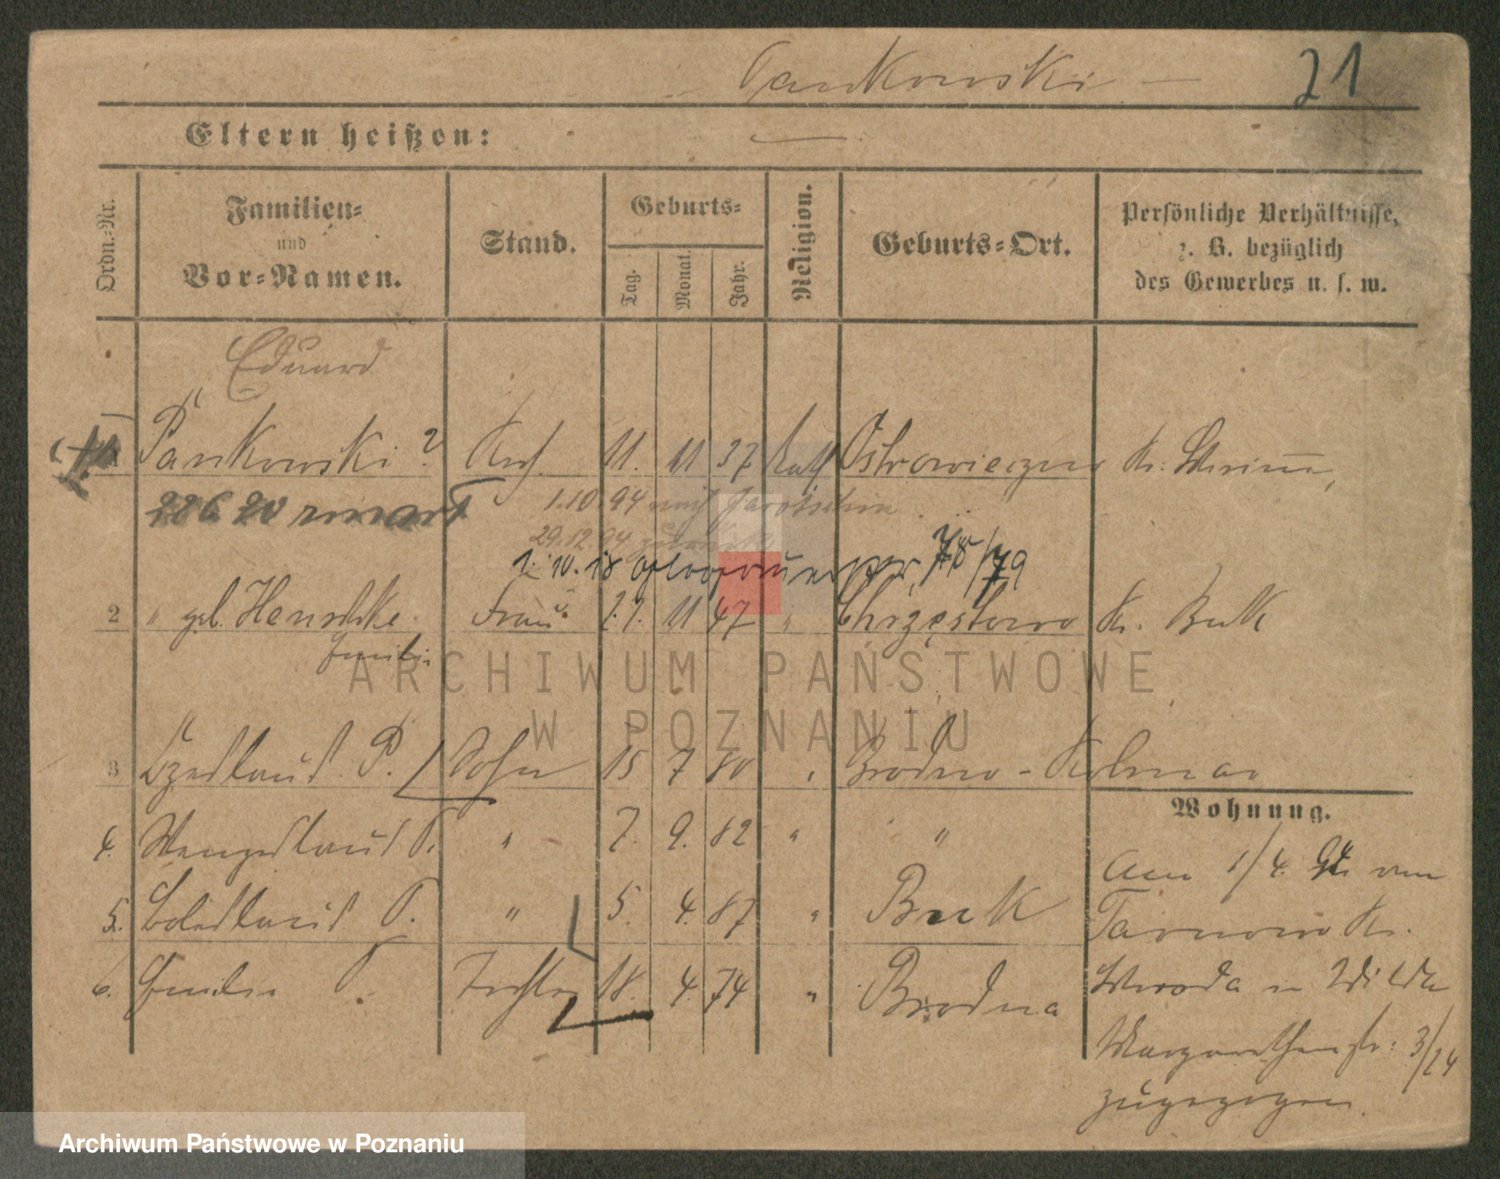 Pankowski — 21
Eltern heißen: —
Ordn.-Nr. Familien- und Vor-Namen. Stand. Geburts- Tag. Monat. Jahr. Religion. Geburts-Ort. Persönliche Verhältnisse, z. B. bezüglich des Gewerbes u. s. w.
Eduard
Pankowski? 11. 11 37 kath Ostrowieczno Kr. Schrimm,
22 6 20 zmarł 1.10.94 nach
29.12.94
1. 10. 18 78/79
2 " geb. Henschke Frau 11 47 " Chrzęstowo Kr. Buk
Emilie
3 P. Sohn 15 7 80 " Brodno - Kolmar
4. Wenzeslaus P. " 7. 9. 82 " "
5. Boleslaus P. " 5. 4. 87 " Buk
6. Emilie P. Tochter 18. 4. 74 " Brodna
Wohnung.
Am 1/4. von
Tarnowo Kr.
Schroda in Wilda
Margarethenstr: 3/24
zugezogen.
ARCHIWUM PAŃSTWOWE
W POZNANIU
Archiwum Państwowe w Poznaniu